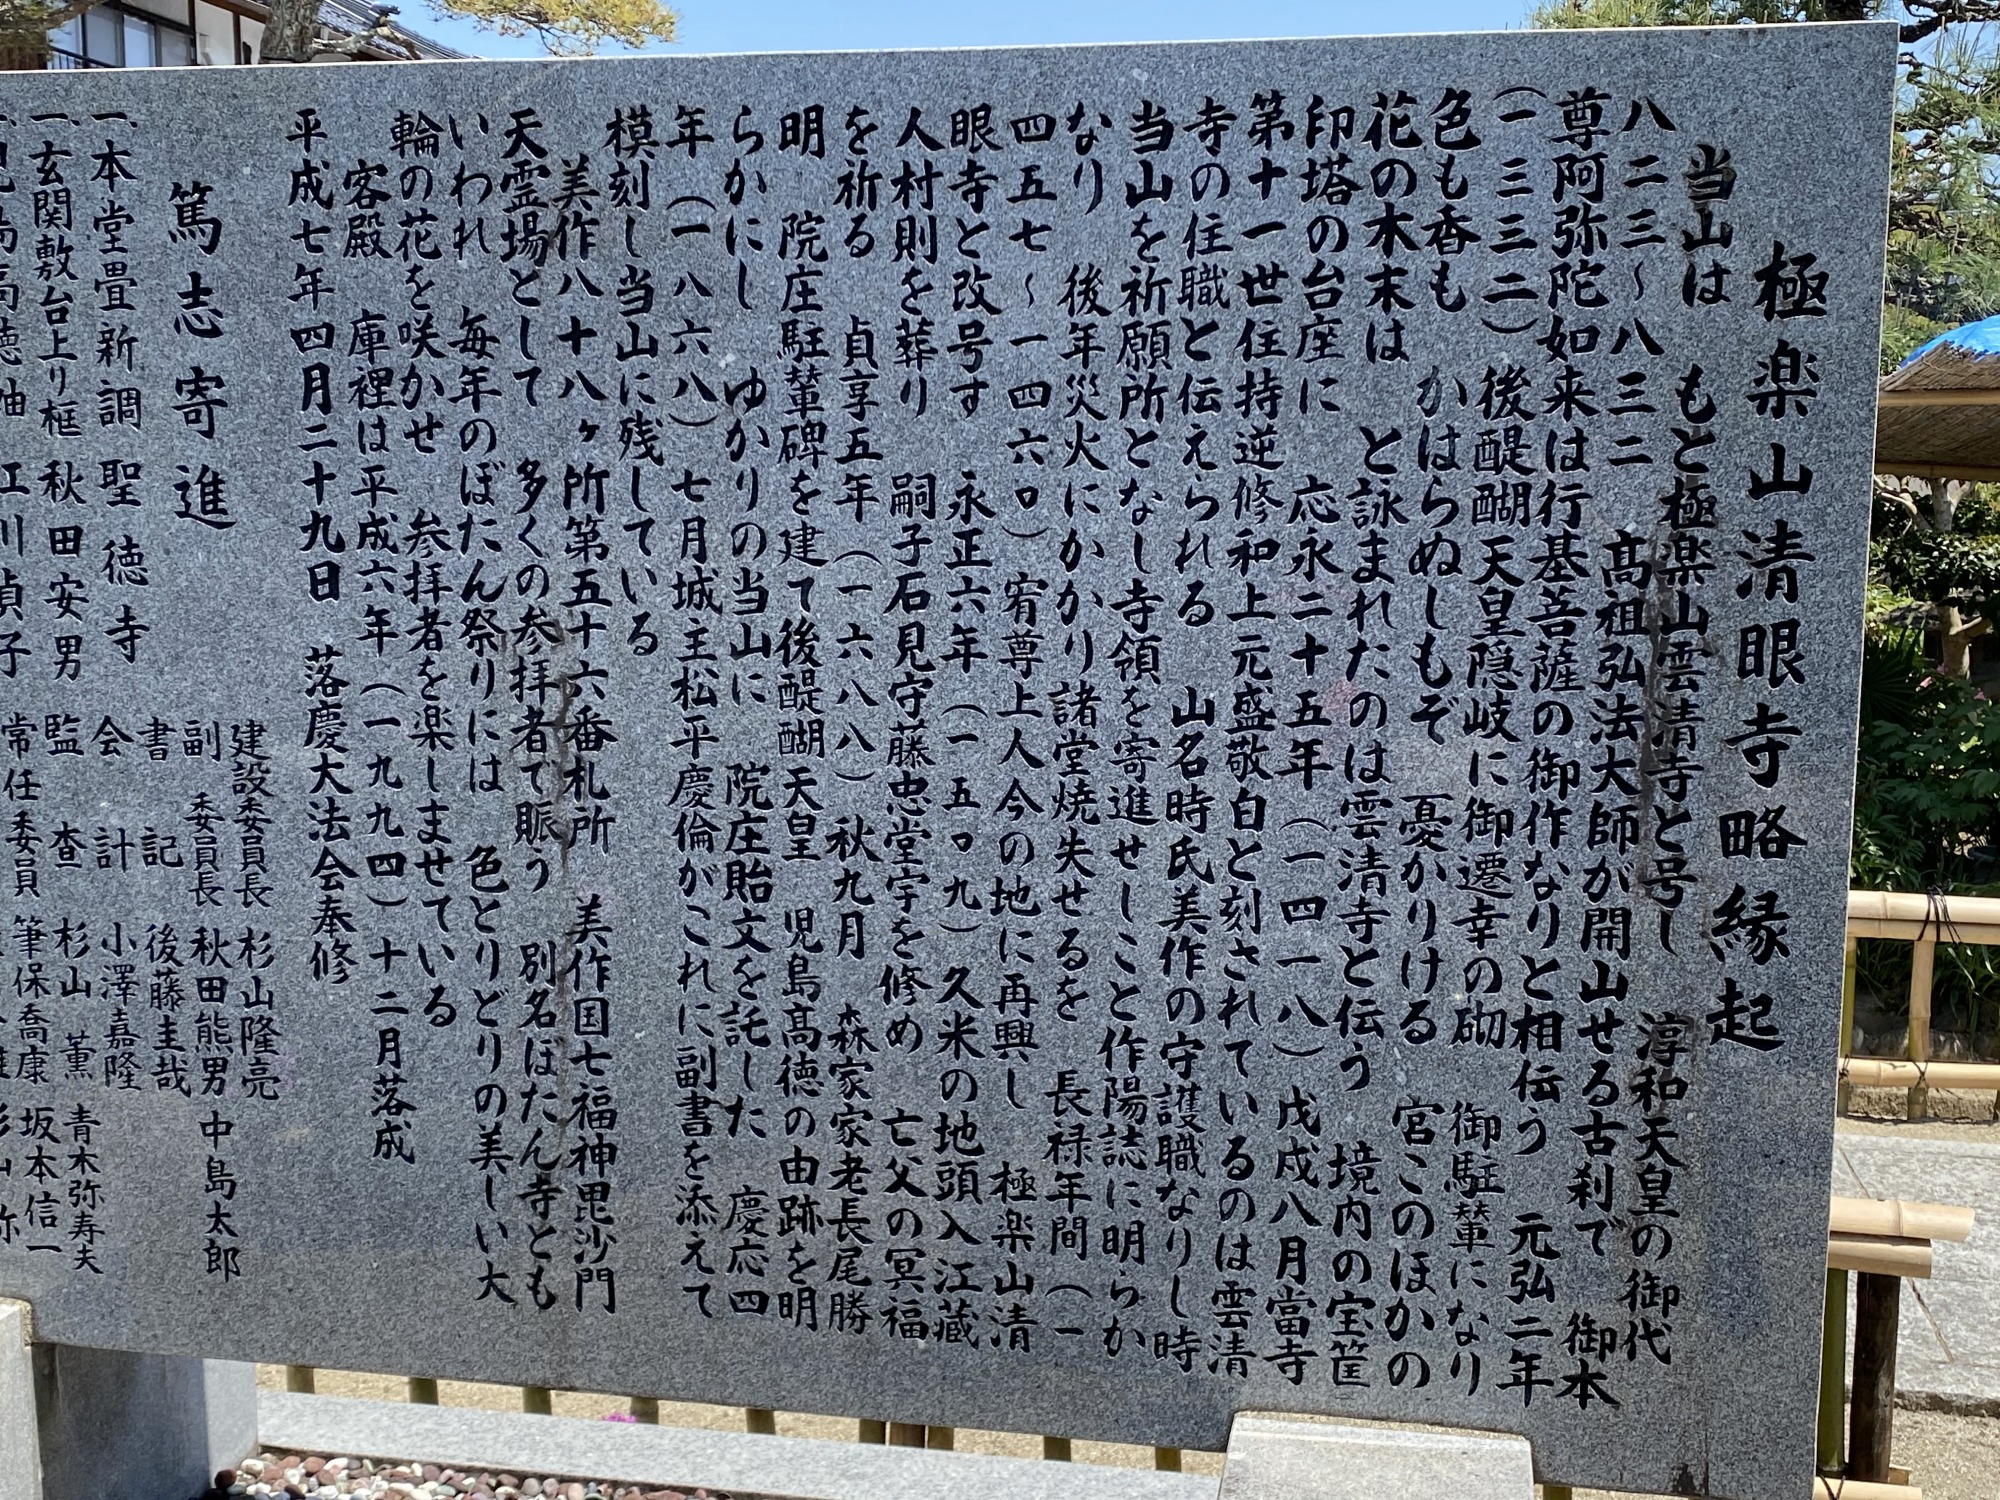 極楽山清眼寺略縁起
当山は　もと極楽山雲清寺と号し　淳和天皇の御代
八二三〜八三二　髙祖弘法大師が開山せる古刹で　御本
尊阿弥陀如来は行基菩薩の御作なりと相伝う　元弘二年
（一三三二）後醍醐天皇隠岐に御遷幸の砌　御駐輦になり
色も香も　かはらぬしもぞ　憂かりける　宮このほかの
花の木末は　と詠まれたのは雲清寺と伝う　境内の宝筐
印塔の台座に　応永二十五年（一四一八）戊戌八月當寺
第十一世住持逆修和上元盛敬白と刻されているのは雲清
寺の住職と伝えられる　山名時氏美作の守護職なりし時
当山を祈願所となし寺領を寄進せしこと作陽誌に明らか
なり　後年災火にかかり諸堂焼失せるを　長禄年間（一
四五七〜一四六〇）宥尊上人今の地に再興し　極楽山清
眼寺と改号す　永正六年（一五〇九）久米の地頭入江蔵
人村則を葬り　嗣子石見守藤忠堂宇を修め　亡父の冥福
を祈る　貞享五年（一六八八）秋九月　森家家老長尾勝
明　院庄駐輦碑を建て後醍醐天皇　児島髙徳の由跡を明
らかにし　ゆかりの当山に　院庄貽文を託した　慶応四
年（一八六八）七月城主松平慶倫がこれに副書を添えて
模刻し当山に残している
美作八十八ヶ所第五十六番札所　美作国七福神毘沙門
天霊場として　多くの参拝者で賑う　別名ぼたん寺とも
いわれ　毎年のぼたん祭りには　色とりどりの美しい大
輪の花を咲かせ　参拝者を楽しませている
客殿　庫裡は平成六年（一九九四）十二月落成
平成七年四月二十九日　落慶大法会奉修
篤志寄進
建設委員長　杉山隆亮
副委員長　秋田熊男　中島太郎
書記　後藤圭哉
一、本堂畳新調　聖徳寺　会計　小澤嘉隆
一、玄関敷台上り框　秋田安男　監査　杉山薫　青木弥寿夫
江川貞子　常任委員　筆保喬康　坂本信一